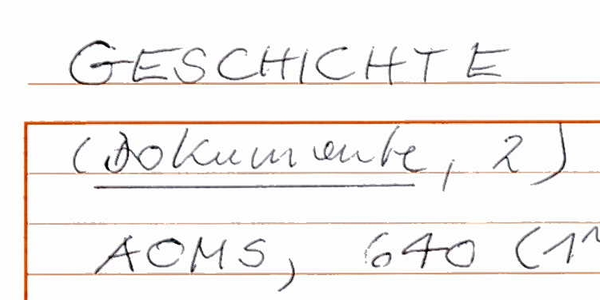 GESCHICHTE
(Dokumente, 2)
AOMS, 640